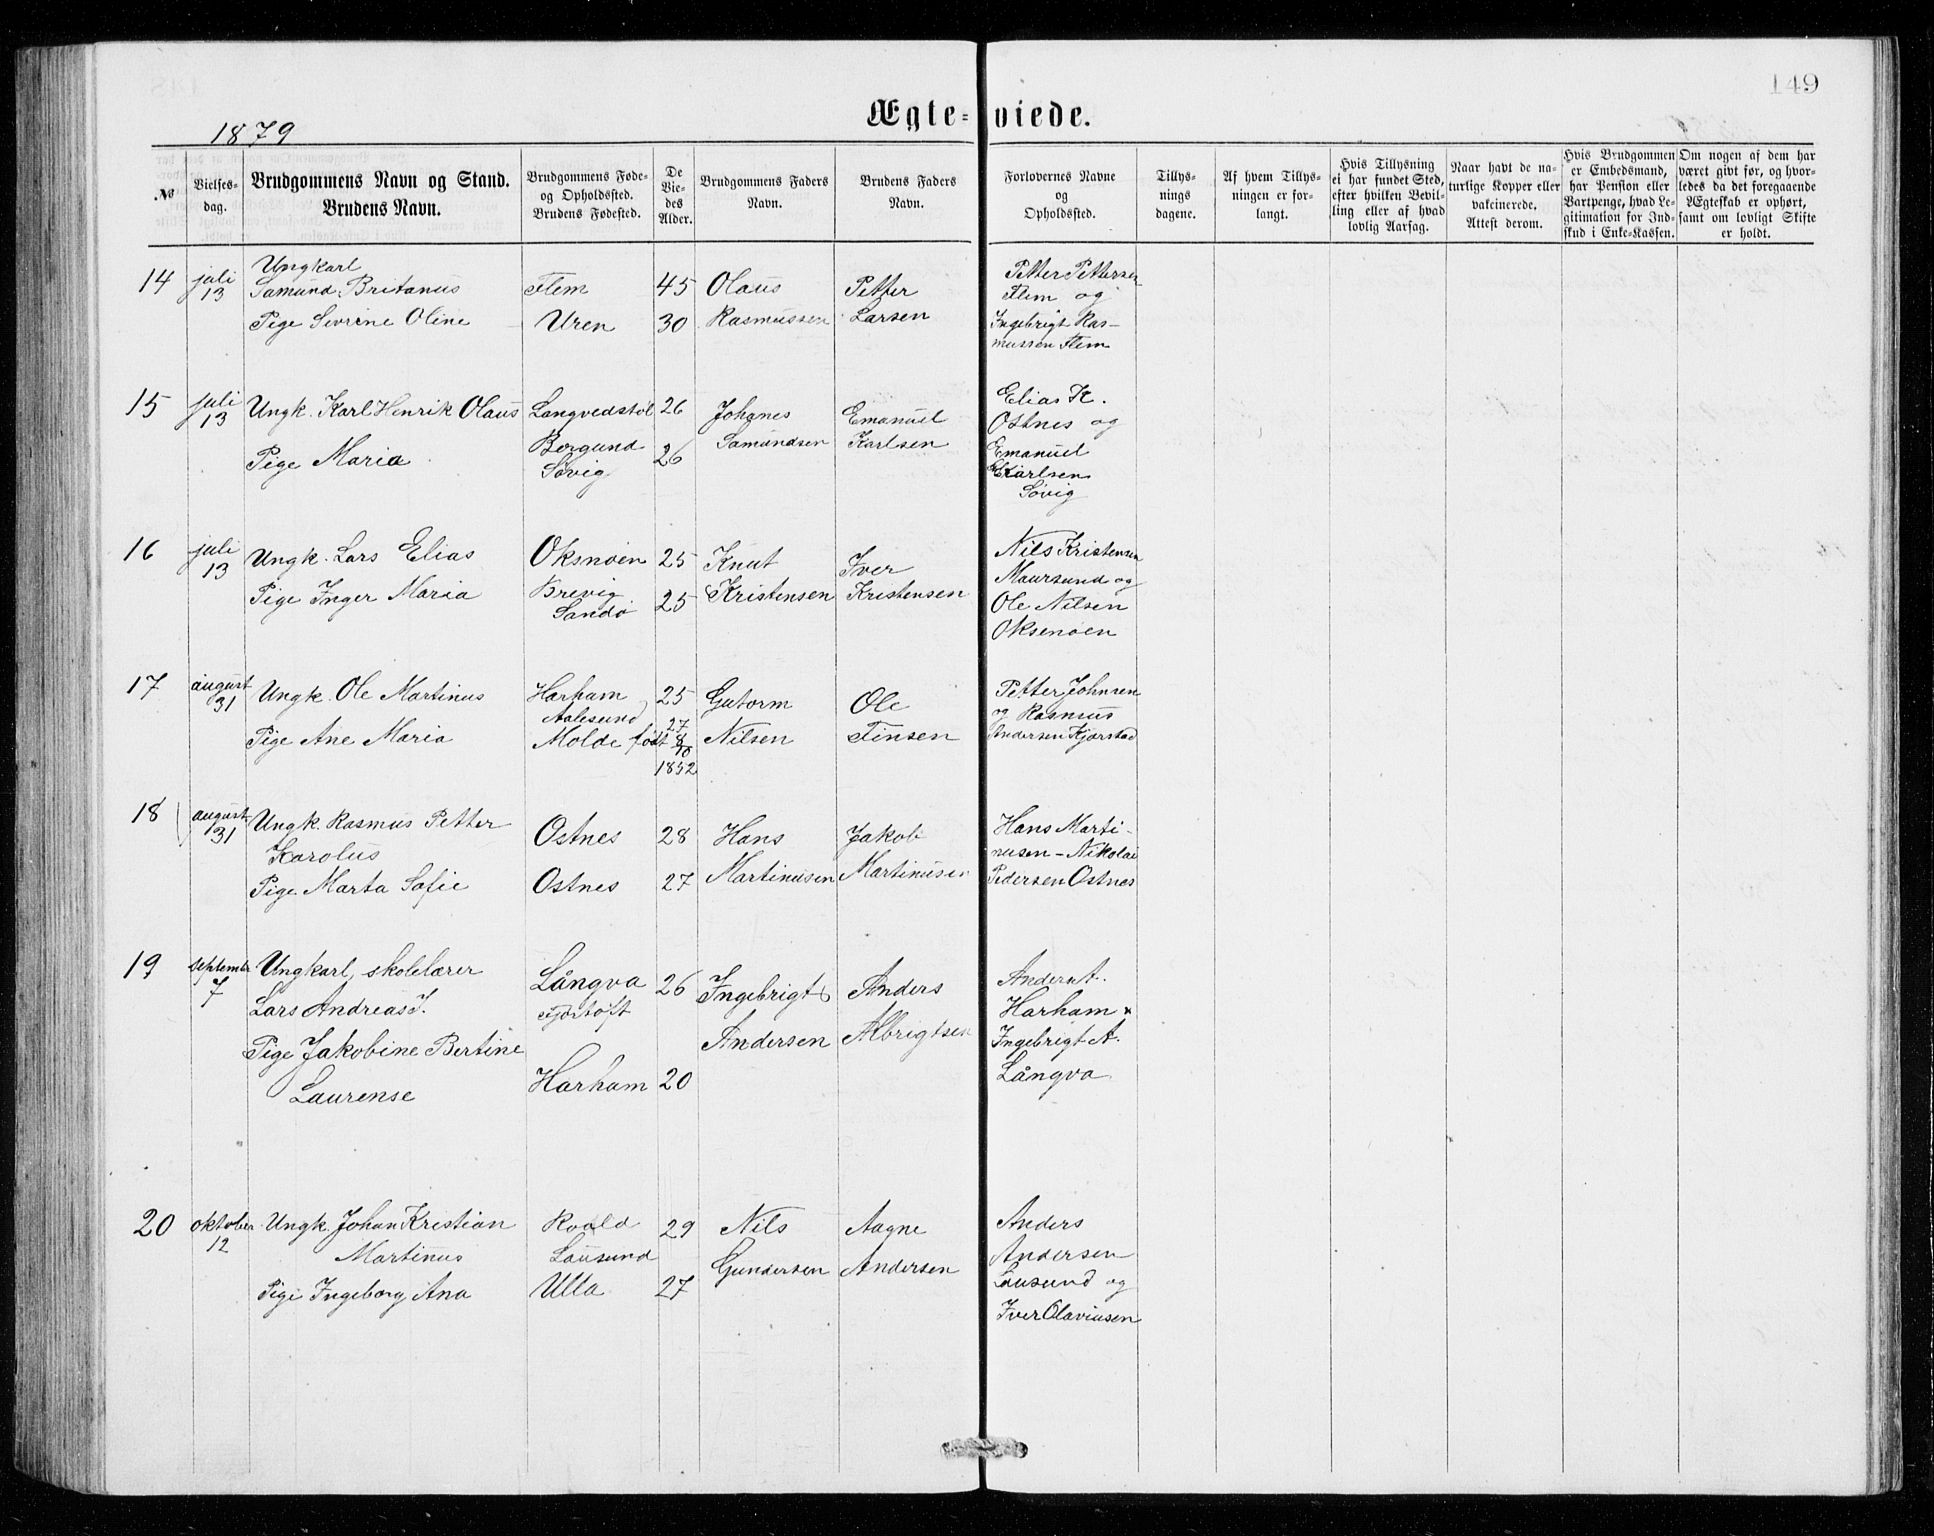 149
Ægte-viede.
1879
№
Vielses-
dag.
Brudgommens Navn og Stand.
Brudens Navn.
Brudgommens Føde-
og Opholdssted.
Brudens Fødested.
De
Vie-
des
Alder.
Brudgommens Faders
Navn.
Brudens Faders
Navn.
Forlovernes Navne
og
Opholdssted.
Tillys-
nings
dagene.
Af hvem Tillys-
ningen er for-
langt.
Hvis Tillysning
ei har fundet Sted,
efter hvilken Bevil-
ling eller af hvad
lovlig Aarsag.
Naar havt de na-
turlige Kopper eller
vakcinerede.
Attest derom.
Hvis Brudgommen
er Embedsmand,
har Pension eller
Vartpenge, hvad Le-
gitimation for Ind-
skud i Enke-Kassen.
Om nogen af dem har
været givt før, og hvor-
ledes da det foregaaende
Ægteskab er ophørt,
samt om lovligt Skifte
er holdt.
14 juli 13
Ungkarl
Samund Britanus
Pige Sevrine Oline
Flem
Uren
45
30
Olaus
Rasmussen
Petter
Larsen
Petter Pettersen
Flem og
Ingebrigt Ras-
mussen Flem
15 juli 13
Ungk. Karl Henrik Olaus
Pige Maria
Langvedstøl
Borgund
Søvig
26
26
Johanes
Samundsen
Emanuel
Karlsen
Elias K.
Ostnes og
Emanuel
Karlsen
Søvig
16 juli 13
Ungk. Lars Elias
Pige Inger Maria
Oksnøen
Brevig
Sandø
25
25
Knut
Kristensen
Iver
Kristensen
Nils Kristensen
Maursund og
Ole Nilsen
Oksenøen
17 august 31
Ungk. Ole Martinus
Pige Ane Maria
Harham
Aalesund
Molde født
25
27
8/10
1852
Gutorm
Nilsen
Ole
Finsen
Petter Johnsen
og Rasmus
Andersen Kjærstad
18 august 31
Ungk. Rasmus Petter
Karolus
Pige Marta Sofie
Ostnes
Ostnes
28
27
Hans
Martinusen
Jakob
Martinusen
Hans Marti-
nusen - Nikolai
Pedersen Ostnes
19 september 7
Ungkarl, skolelærer
Lars Andreas I.
Pige Jakobine Bertine
Laurense
Långva
Fjørtoft
Harham
26
20
Ingebrigt
Andersen
Anders
Albrigtsen
Anders A.
Harham &
Ingebrigt A.
Långva
20 oktober 12
Ungk. Johan Kristian
Martinus
Pige Ingeborg Ana
Roald
Lausund
Ulla
29
27
Nils
Gundersen
Aagne
Andersen
Anders
Andersen
Lausund og
Iver Olaviusen